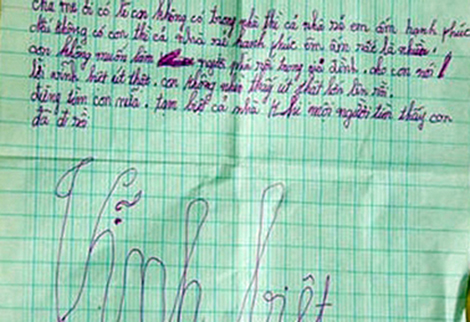 cha mẹ ơi có lẽ con không có trong nhà thì cả nhà sẽ êm ấm hạnh phúc
khi không có con thì cả nhà sẽ hạnh phúc êm ấm rất là nhiều.
con không muốn làm người phá rối trong gia đình. cho con nói 1
lời vĩnh biệt út thật. con không nhà thấy út phát lớn lần rồi.
đừng tìm con nữa. tạm biệt cả nhà khi mỗi người tìm thấy con
đã đi rồi
Vĩnh biệt